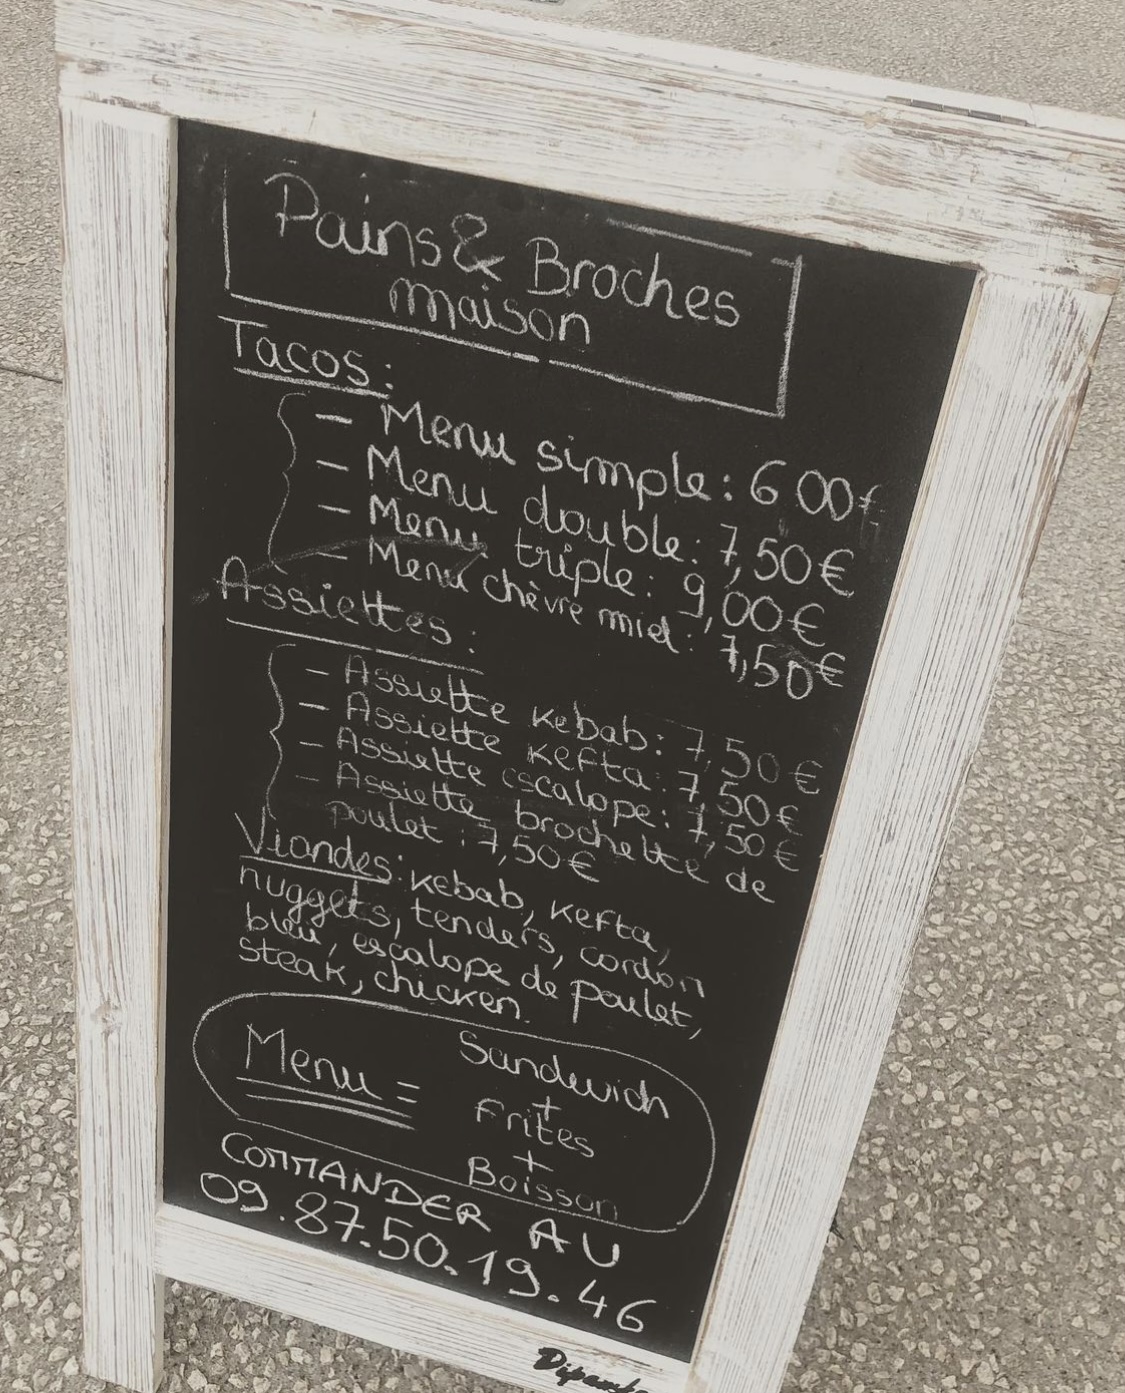 Pains & Broches
maison
Tacos :
- Menu simple : 6 00€
- Menu double : 7,50€
- Menu triple : 9,00€
- Menu chèvre miel : 7,50€
Assiettes :
- Assiette kebab : 7,50€
- Assiette kefta : 7,50€
- Assiette escalope : 7,50€
- Assiette brochette de
poulet : 7,50€
Viandes : kebab, kefta,
nuggets, tenders, cordon
bleu, escalope de poulet,
steak, chicken.
Menu = Sandwich
+
Frites
+
Boisson
COMMANDER AU
09.87.50.19.46